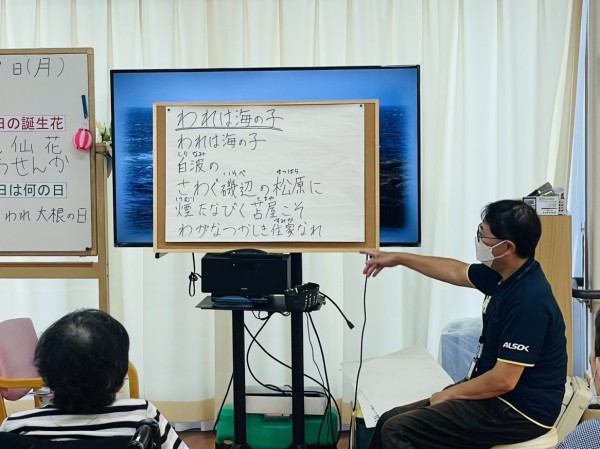 日(月)
日の誕生花
仙花
うせんか
日は何の日
われ 大根の日
われは海の子
われは海の子
しら なみ
白波の
いそべ まつばら
さわぐ磯辺の松原に
けむり とまや
煙たなびく苫屋こそ
すみか
わがなつかしき住家なれ
ALSOK